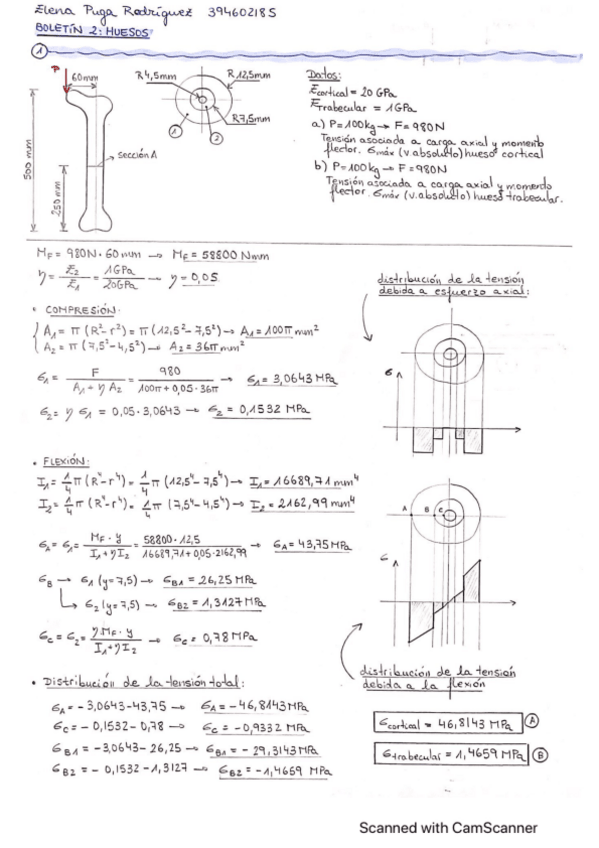 Elena Puga Rodríguez 39460218S
BOLETÍN 2: HUESOS
1
P
60mm
R4,5mm
R12,5mm
R7,5mm
1
2
500 mm
250 mm
sección A
Datos:
Ecortical = 20 GPa
Etrabecular = 1GPa
a) P=100kg → F=980N
Tensión asociada a carga axial y momento
flector. σmáx (v absoluto) hueso cortical
b) P=100kg → F=980N
Tensión asociada a carga axial y momento
flector. σmáx (v. absoluto) hueso trabecular.
MF = 980N · 60mm → MF = 58800 Nmm
η = E2/E1 = 1GPa/20GPa → η = 0,05
distribución de la tensión
debida a esfuerzo axial:
• COMPRESIÓN:
A1 = π (R²-r²) = π (12,5²-7,5²) → A1 = 100π mm²
A2 = π (7,5²-4,5²) → A2 = 36π mm²
σ1 = F/(A1 + η A2) = 980/(100π+0,05·36π) → σ1 = 3,0643 MPa
σ2 = η σ1 = 0,05 · 3,0643 → σ2 = 0,1532 MPa
σ
• FLEXIÓN:
I1 = 1/4 π (R⁴-r⁴) = 1/4 π (12,5⁴-7,5⁴) → I1 = 16689,71 mm⁴
I2 = 1/4 π (R⁴-r⁴) = 1/4 π (7,5⁴-4,5⁴) → I2 = 2162,99 mm⁴
A B C
σA = σ1 = MF · y/(I1+ηI2) = 58800 · 12,5/(16689,71+0,05·2162,99) → σA = 43,75 MPa
σ
σB → σ1 (y=7,5) → σB1 = 26,25 MPa
σ2 (y=7,5) → σB2 = 1,3127 MPa
σC = σ2 = ηMF · y/(I1+ηI2) → σC = 0,78 MPa
distribución de la tensión
debida a la flexión
• Distribución de la tensión total:
σA = -3,0643-43,75 → σA = -46,8143 MPa
σC = -0,1532-0,78 → σC = -0,9332 MPa
σB1 = -3,0643-26,25 → σB1 = -29,3143 MPa
σB2 = -0,1532-1,3127 → σB2 = -1,4659 MPa
σcortical = 46,8143 MPa A
σtrabecular = 1,4659 MPa B
Scanned with CamScanner